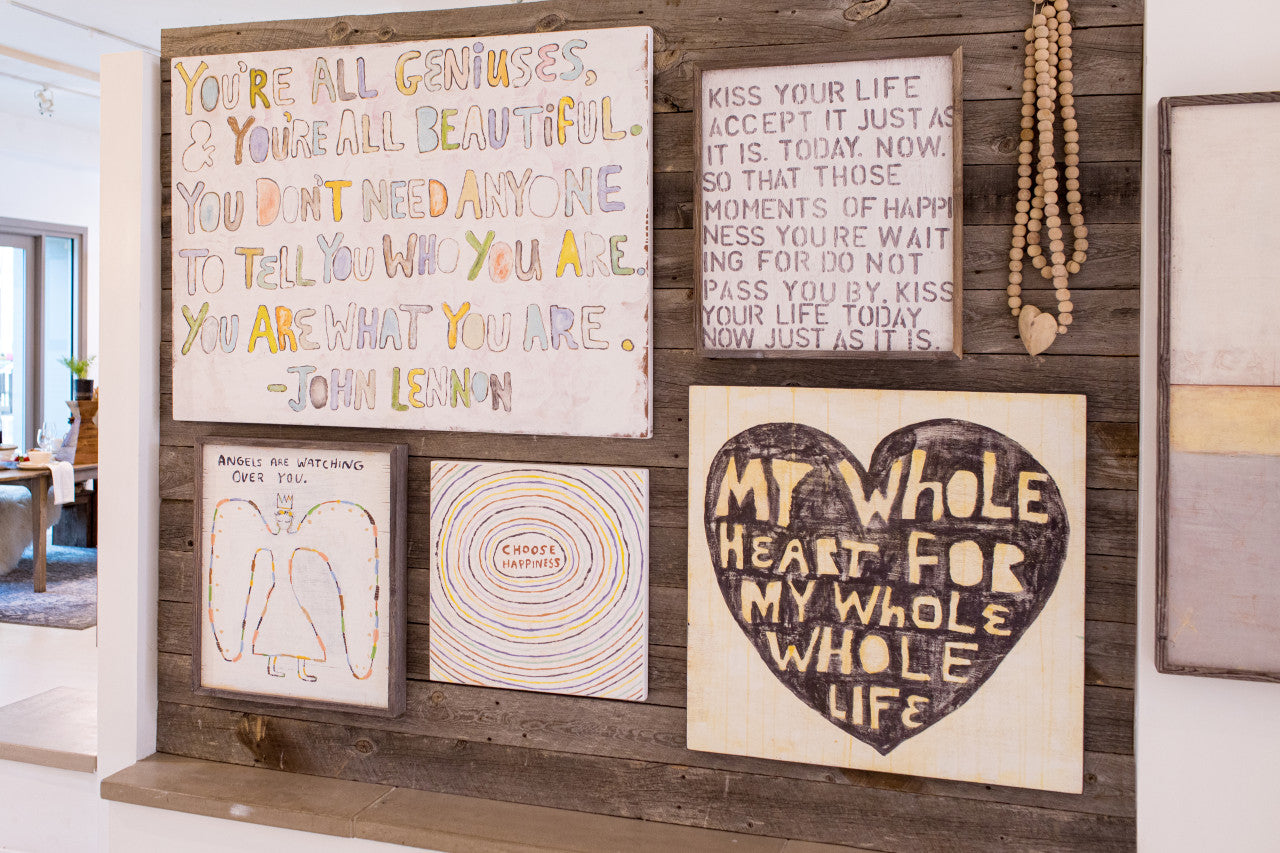 YOU'RE ALL GENIUSES,
& YOU'RE ALL BEAUTIFUL.
YOU DON'T NEED ANYONE
TO TELL YOU WHO YOU ARE.
YOU ARE WHAT YOU ARE.
-JOHN LENNON
KISS YOUR LIFE
ACCEPT IT JUST AS
IT IS. TODAY. NOW.
SO THAT THOSE
MOMENTS OF HAPPI
NESS YOU'RE WAIT
ING FOR DO NOT
PASS YOU BY. KISS
YOUR LIFE TODAY
NOW JUST AS IT IS.
ANGELS ARE WATCHING
OVER YOU.
CHOOSE
HAPPINESS
MY WHOLE
HEART FOR
MY WHOLE
WHOLE
LIFE